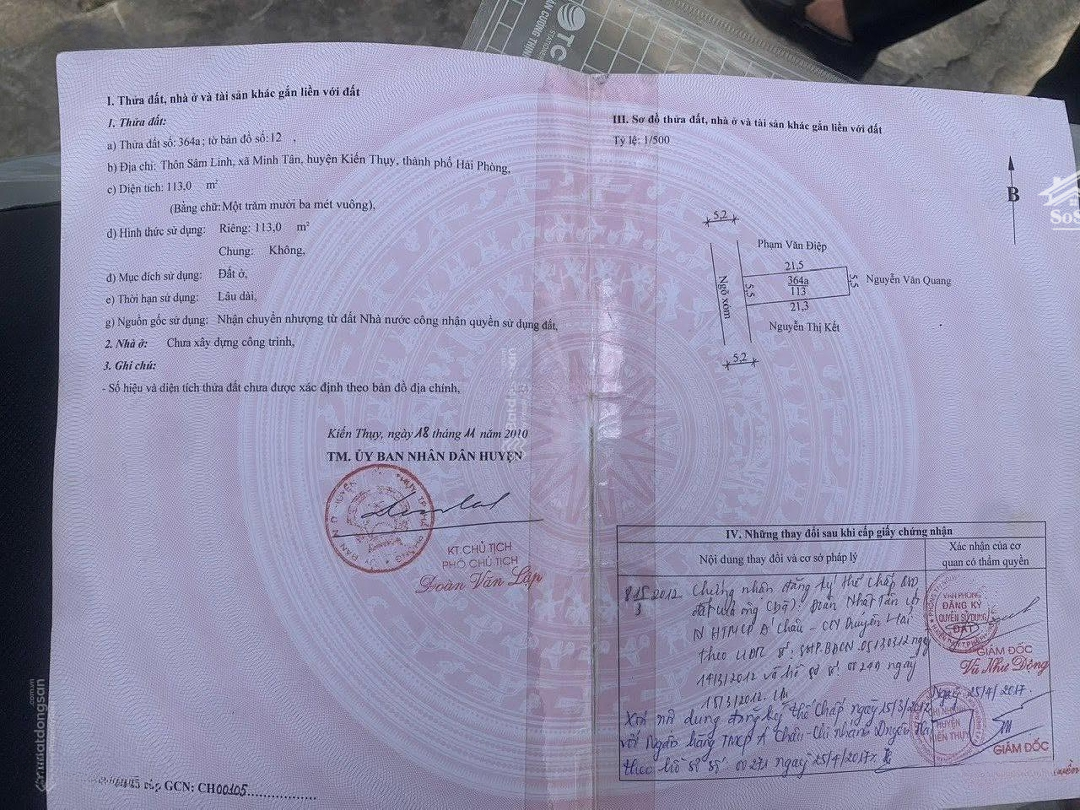 I. Thửa đất, nhà ở và tài sản khác gắn liền với đất
1. Thửa đất:
a) Thửa đất số: 364a; tờ bản đồ số: 12 ,
b) Địa chỉ: Thôn Sâm Linh, xã Minh Tân, huyện Kiến Thụy, thành phố Hải Phòng,
c) Diện tích: 113,0 m²
(Bằng chữ: Một trăm mười ba mét vuông),
d) Hình thức sử dụng: Riêng: 113,0 m²
Chung: Không,
đ) Mục đích sử dụng: Đất ở,
e) Thời hạn sử dụng: Lâu dài,
g) Nguồn gốc sử dụng: Nhận chuyển nhượng từ đất Nhà nước công nhận quyền sử dụng đất,
2. Nhà ở: Chưa xây dựng công trình,
3. Ghi chú:
- Số hiệu và diện tích thửa đất chưa được xác định theo bản đồ địa chính,
Kiến Thụy, ngày 18 tháng 11 năm 2010
TM. ỦY BAN NHÂN DÂN HUYỆN
KT CHỦ TỊCH
PHÓ CHỦ TỊCH
Đoàn Văn Lập
cấp GCN: CH00105
III. Sơ đồ thửa đất, nhà ở và tài sản khác gắn liền với đất
Tỷ lệ: 1/500
B
5,2
Phạm Văn Điệp
21,5
Ngõ xóm
5,5
364a
113
5,5
Nguyễn Văn Quang
21,3
Nguyễn Thị Kết
5,2
IV. Những thay đổi sau khi cấp giấy chứng nhận
Nội dung thay đổi và cơ sở pháp lý
Xác nhận của cơ
quan có thẩm quyền
2012 Chứng nhận đăng ký thế chấp
đất Đoàn Nhật Tân
NHTMCP Á Châu - CN Duyên Hải
theo ngày
14/3/2012 và hồ sơ số 00249 ngày
15/3/2012.
VĂN PHÒNG
ĐĂNG KÝ
QUYỀN SỬ DỤNG
ĐẤT
GIÁM ĐỐC
Vũ Như Dộng
Xóa nội dung đăng ký thế chấp ngày 15/3/2012
với Ngân hàng TMCP Á Châu - Chi nhánh Duyên Hải
theo hồ sơ số 00271 ngày 25/4/2017.
Ngày 25/4/2017.
HUYỆN
KIẾN THỤY
GIÁM ĐỐC
Batdongsan
.com.vn